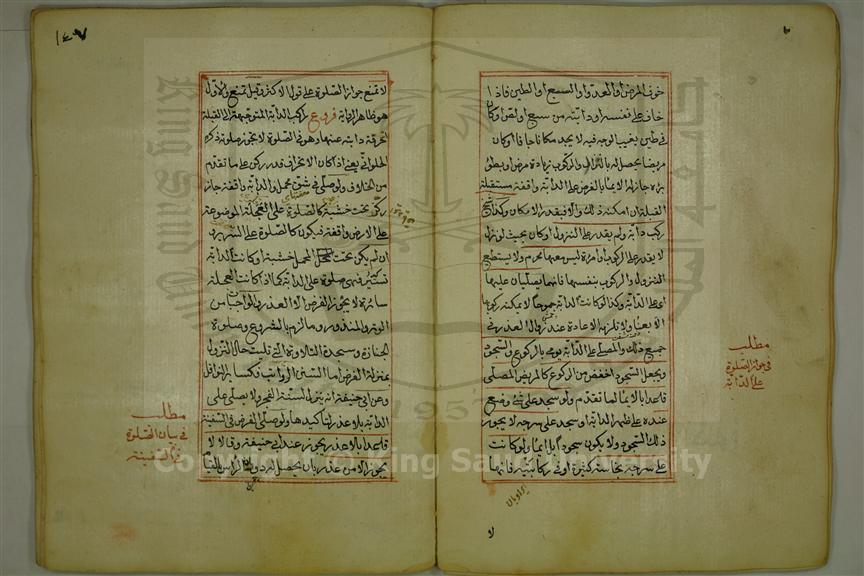 خوف المرض او العدو او السبع او الطين فاذا
خاف على نفسه او دابته من سبع او لص او كان
في طين يغيب الوجه فيه لا يجد مكانا جافا او كان
مريضا يحصل له بالنزول والركوب زيادة مرض او بطؤ
برء جاز له الايماء بالفرض على الدابة واقفة مستقبلة
القبلة ان امكنه ذلك والا فبقدر الامكان وكذا شيخ
ركب دابة ولم يقدر على النزول او كان بحيث لو نزل
لا يقدر على الركوب او امرأة ليس معها محرم ولا يستطيع
النزول والركوب بنفسها فانهما يصليان عليها
على الدابة وكذا لو كانت الدابة جموحا لا يمكنه ركوبها
الا بعناء ولا تلزمه الاعادة عند زوال العذر في
جميع ذلك والمصلي على الدابة يومي بالركوع والسجود
ويجعل السجود اخفض من الركوع كالمريض المصلي
قاعدا بالايماء لما تقدم ولو سجد على شيء وضع
عنده على ظهر الدابة او سجد على سرجه لا يجوز
ذلك السجود ولا يكون سجودا بل ايماء ولو كانت
على سرجه نجاسة كثيرة او في ركابيه فانها
مطلب
في جواز الصلوة
على الدابة
لا
١٤٧
لا تمنع جواز الصلوة على قول الاكثر وقيل تمنع والاول
هو ظاهر الرواية فروع راكب الدابة المتوجهة الى القبلة
انحرفت دابته عنها وهو في الصلوة لا يجوز صلوته ذكره
الحلواني يعني اذا كان الانحراف قدر ركن على ما تقدم
من الخلاف ولو صلى في شق محمل والدابة واقفة جاز
تحت خشبة كالصلوة على العجلة الموضوعة
على الارض واقفة فيكون كالصلوة على السرير و
ان لم يكن تحت المحمل خشبة او كانت الدابة
تسير فهي صلوة على الدابة كما اذا كانت العجلة
سائرة لا يجوز الفرض الا العذر والواجبات من
الوتر والمنذور وما لزم بالشروع وصلوة
الجنازة وسجدة التلاوة التي تليت حال النزول
بمنزلة الفرض اما السنن الرواتب فكسائر النوافل
وعن ابي حنيفة انه ينزل لسنة الفجر ولا يصلى على
الدابة بلا عذر لتاكيدها ولو صلى الفرض في السفينة
قاعدا بلا عذر يجوز عند ابي حنيفة وقالا لا
يجوز الا من عذر بان يحصل له دوران الرأس بالقيام
مطلب
في بيان الصلوة
في السفينة
King Saud University
1957
Copyright © King Saud University